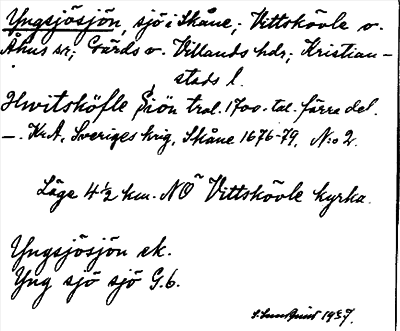 Yngsjösjön, sjö i Skåne; Vittskövle o.
Åhus sr; Gärds o. Villands hdr; Kristian-
stads l.
Hwitsköfle Siön trol. 1700-tal. förra del.
–. KrA, Sveriges krig, Skåne 1676-79, N:o 2.
Läge 4½ km. NO~ Vittskövle kyrka.
Yngsjösjön ek.
Yng sjö sjö G.b.
1937.